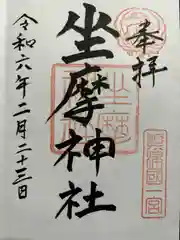 奉拝
坐摩神社
令和六年二月二十三日
摂津國一宮